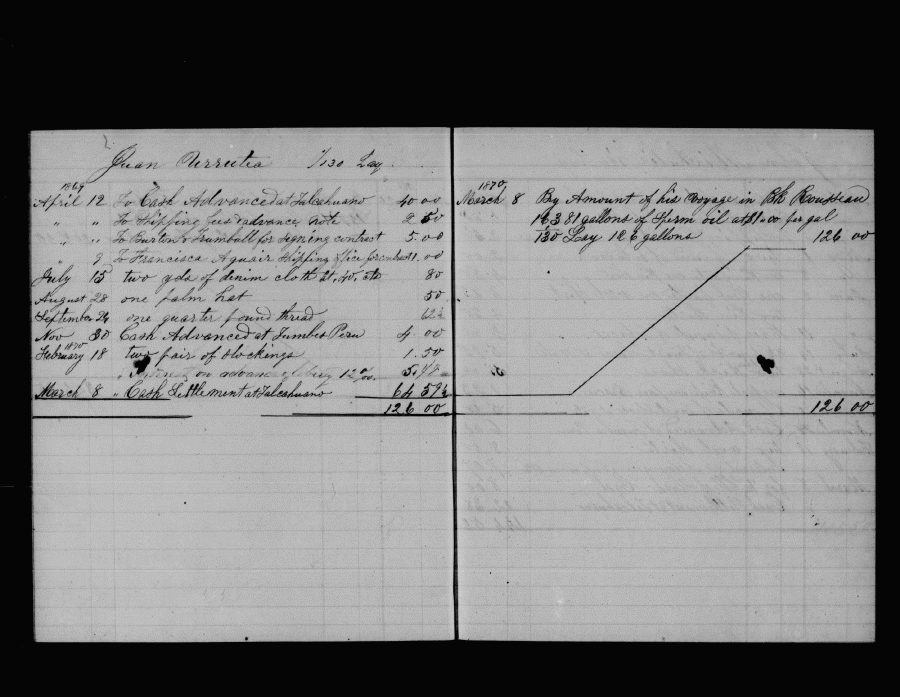 Juan Urrutia 1/130 Lay
1869
April 12 To Cash Advanced at Talcahuano 40 00
" " To Shipping fees & advance note 2 50
" " To Burton & Trumbull for signing contract 5.00
" 9 To Francisca Aguair Shipping office for 1.00
July 15 two yds of denim cloth at .40. cts 80
August 28 one palm hat 50
September 24 one quarter pound thread 62½
Nov 30 Cash Advanced at Tumbes Peru 4 00
1870
February 18 two pair of stockings 1.50
" Interest on advance 12 %
March 8 " Cash Settlement at Talcahuano 64 59½
126 00
1870
March 8 By Amount of his voyage in Bk Rousseau
16381 gallons of Sperm oil at $1.00 per gal
130 Lay 126 gallons 126 00
126 00